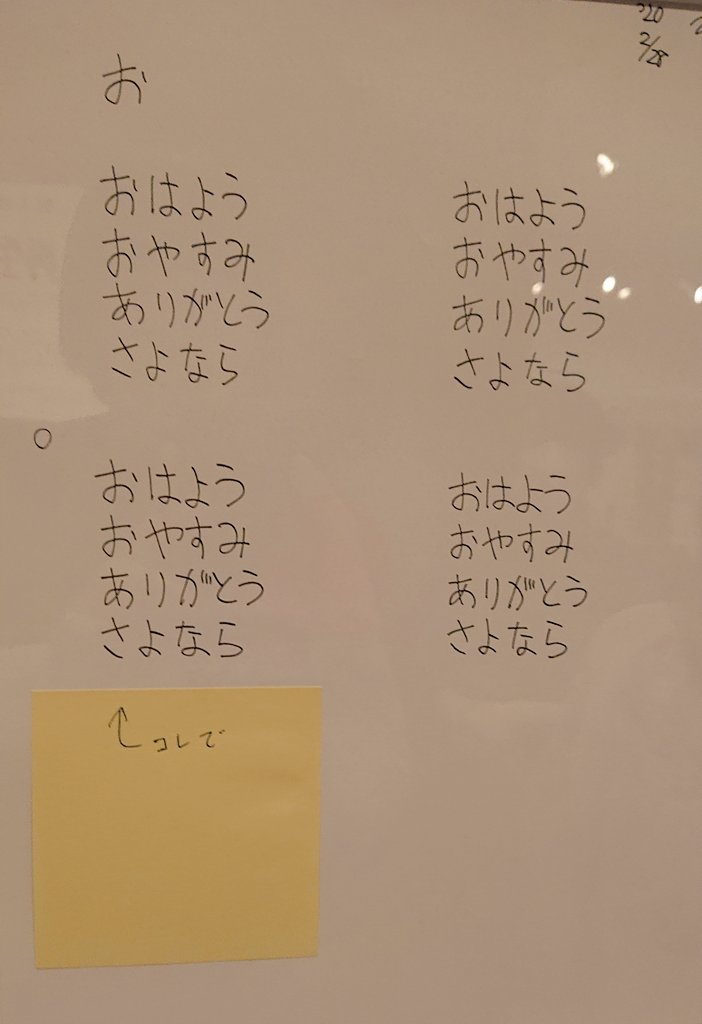 '20
2/28
お
おはよう
おやすみ
ありがとう
さよなら
おはよう
おやすみ
ありがとう
さよなら
○
おはよう
おやすみ
ありがとう
さよなら
おはよう
おやすみ
ありがとう
さよなら
↑コレで